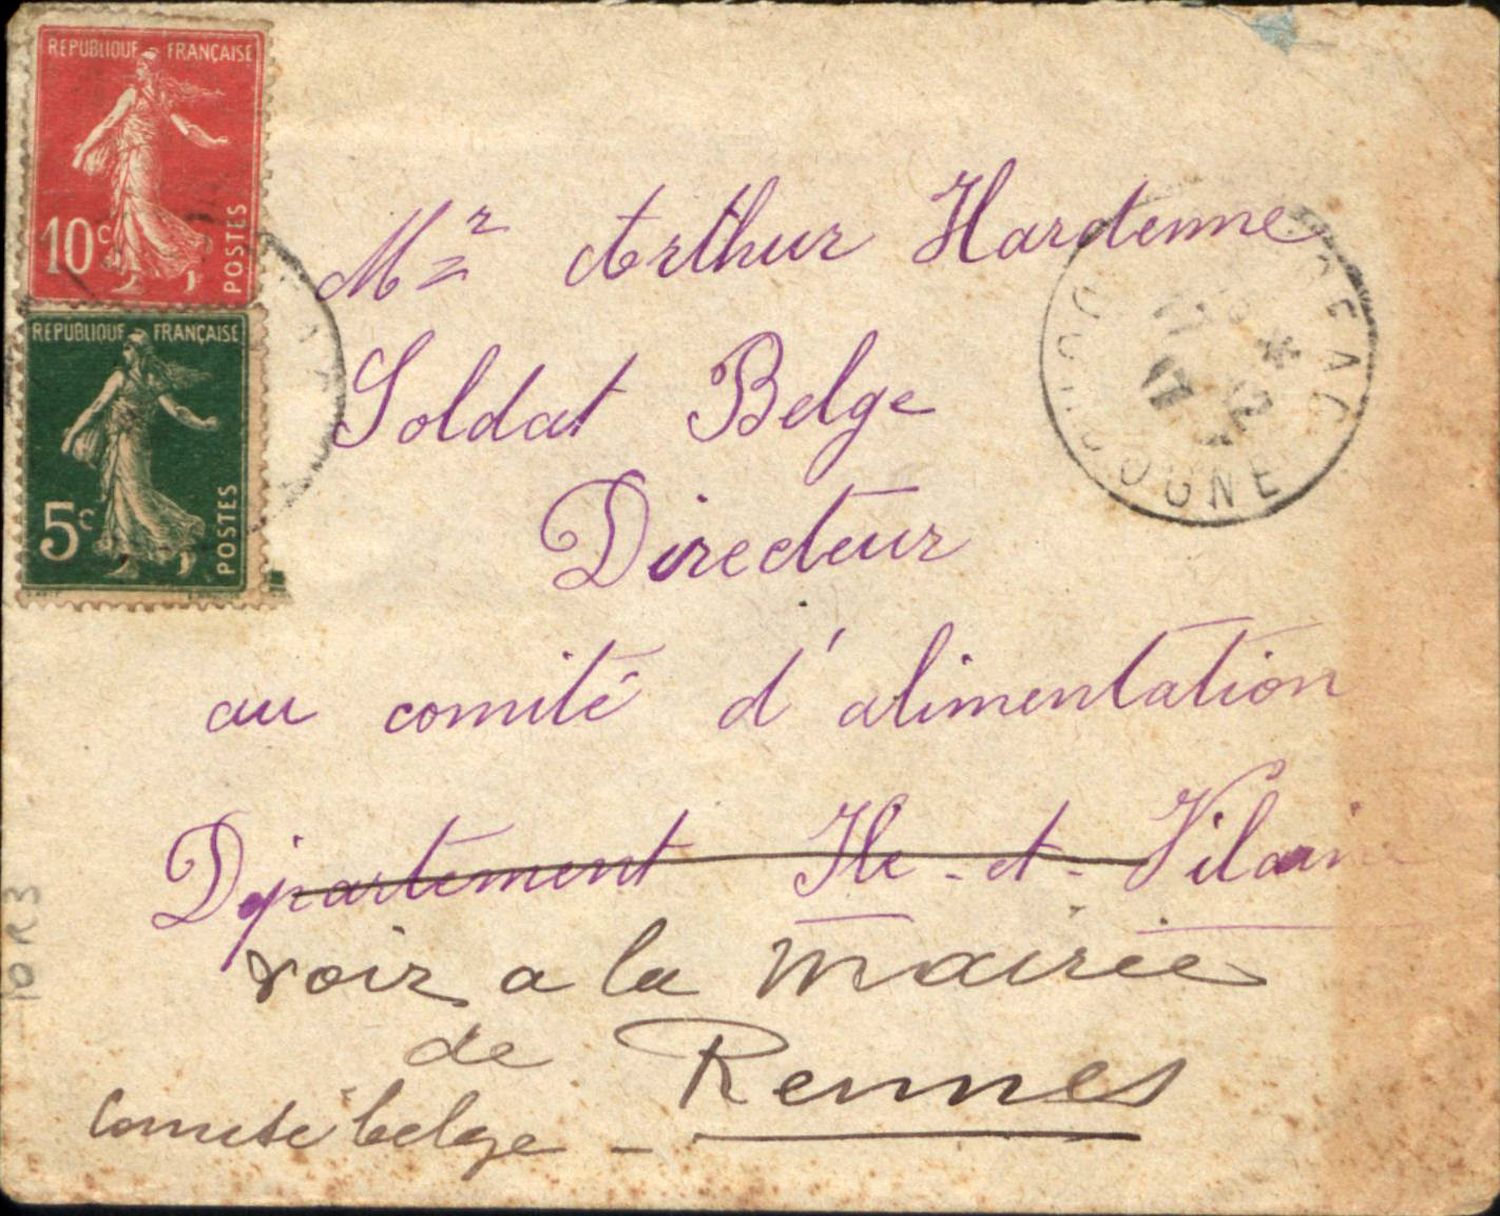 REPUBLIQUE FRANÇAISE
10c
POSTES
REPUBLIQUE FRANÇAISE
5c
POSTES
Mr Arthur Hardenne
Soldat Belge
Directeur
au comité d'alimentation
Département Ile-et-Vilaine
voir a la mairie
de Rennes
Comité belge -
17 12
17